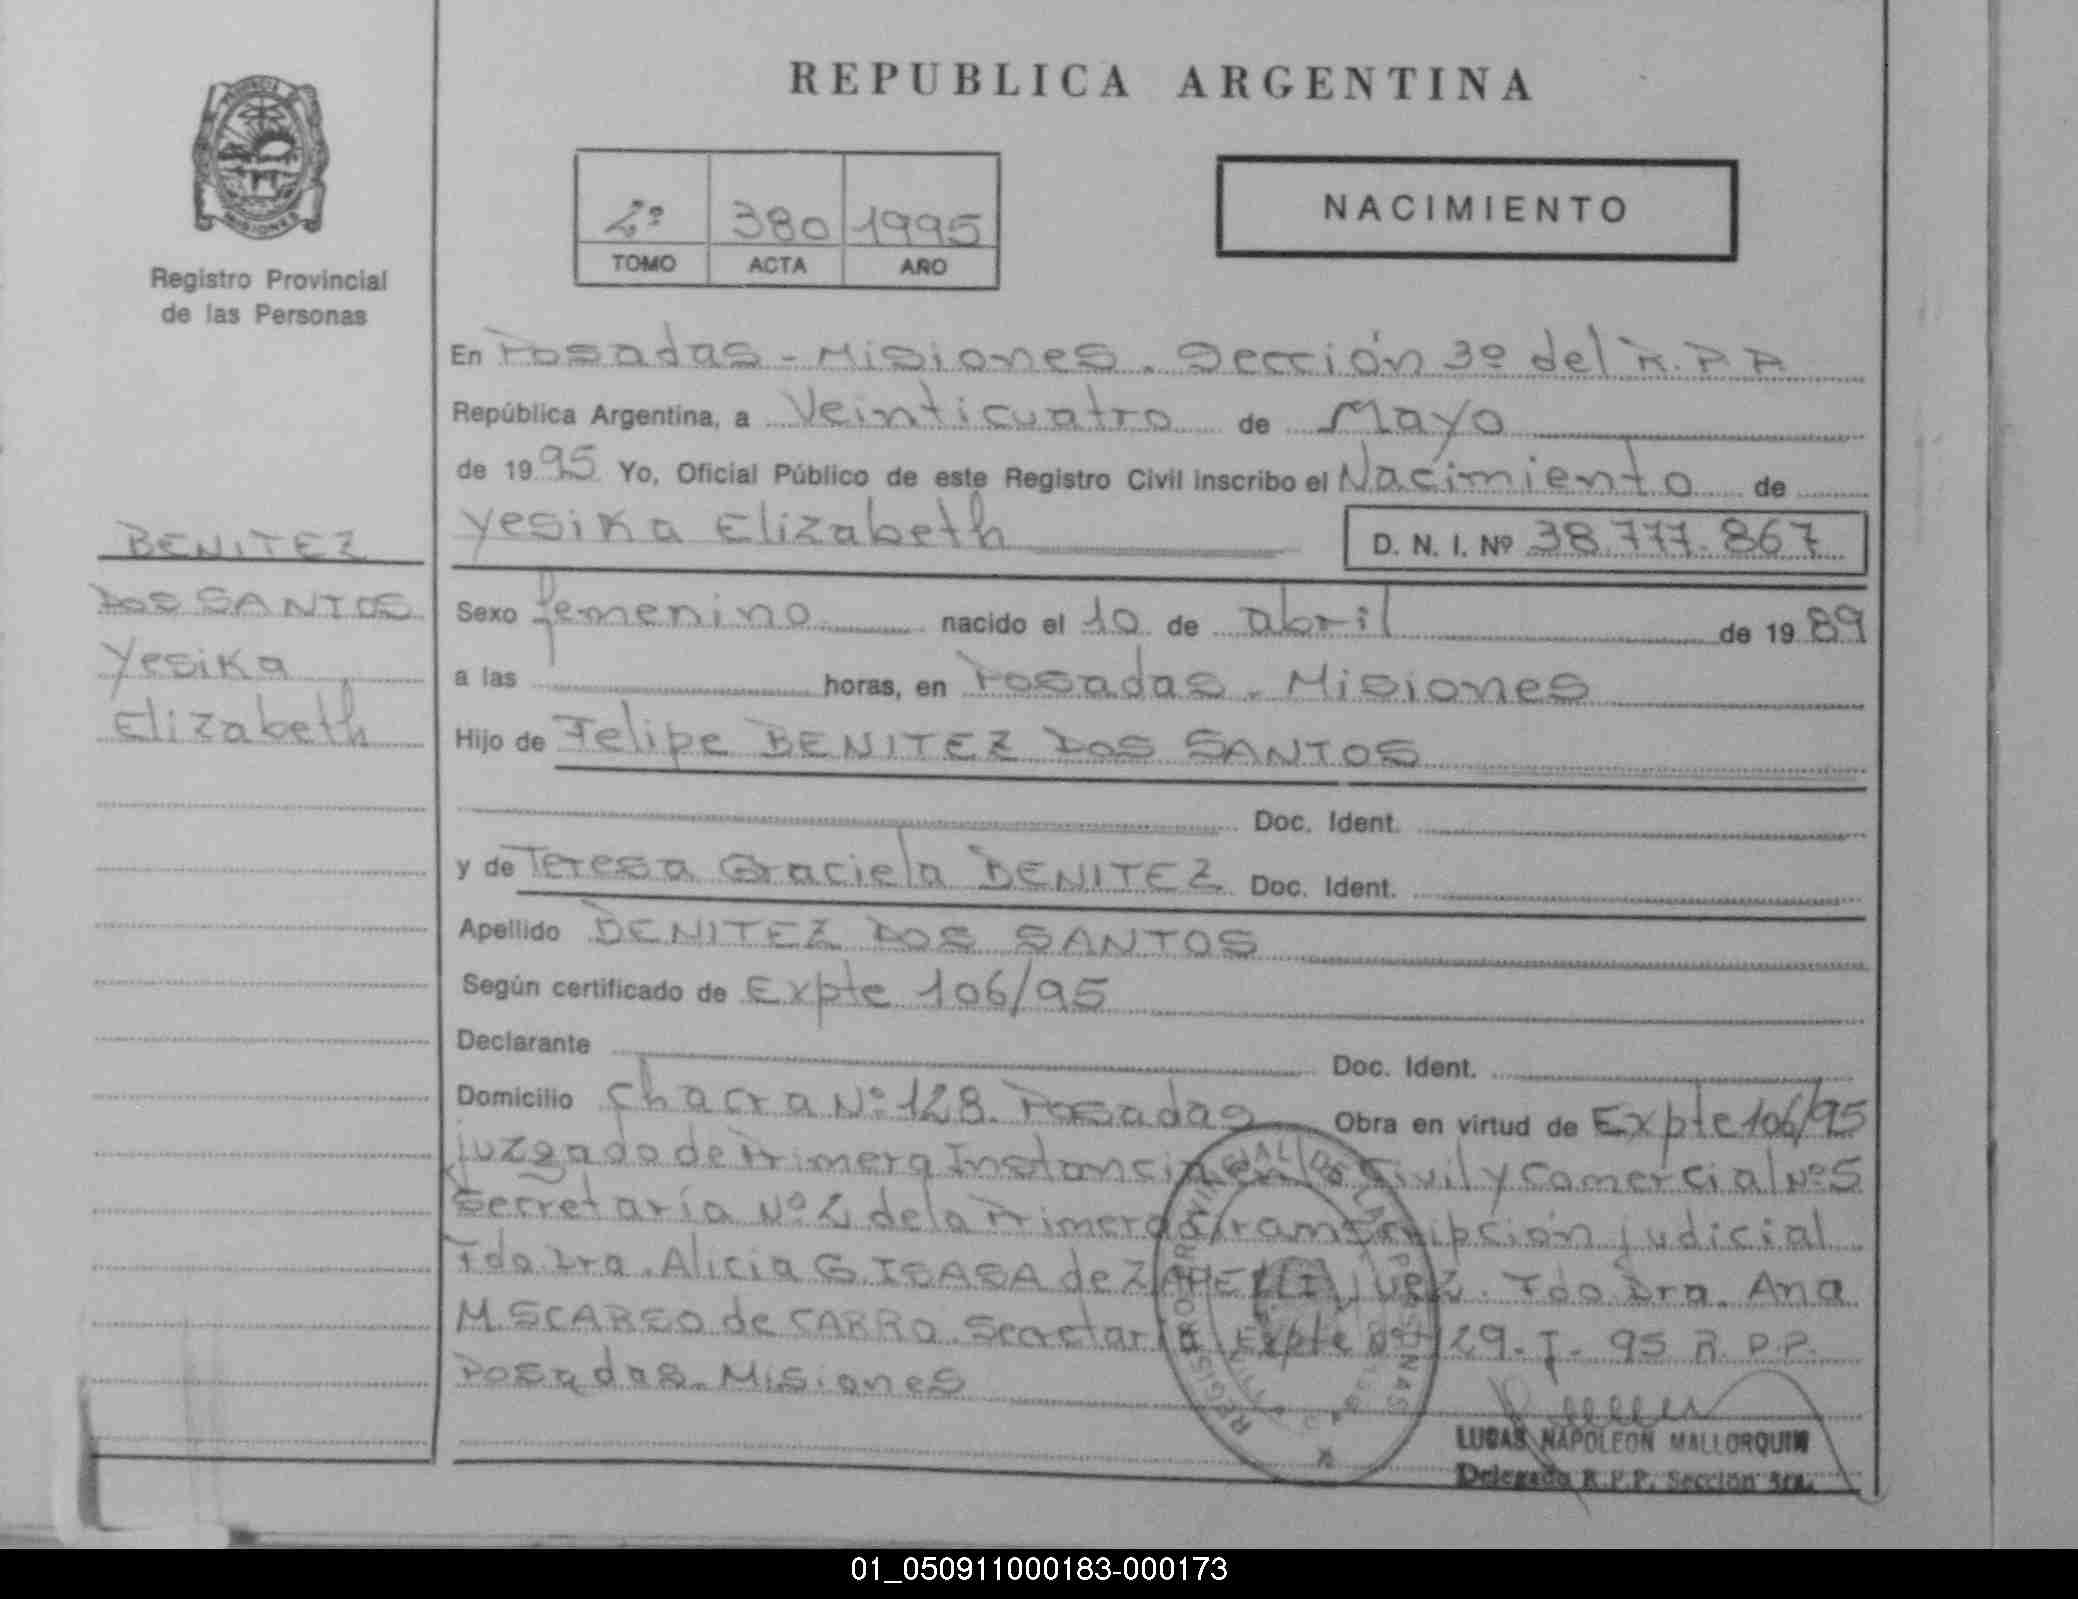 REPUBLICA ARGENTINA
MISIONES
Registro Provincial
de las Personas
2º 380 1995
TOMO ACTA AÑO
NACIMIENTO
BENITEZ
DOS SANTOS
Yesika
Elizabeth
En Posadas - Misiones. Sección 3º del R.P.P
República Argentina, a Veinticuatro de Mayo
de 1995 Yo, Oficial Público de este Registro Civil inscribo el Nacimiento de
Yesika Elizabeth D. N. I. Nº 38.777.867
Sexo femenino nacido el 10 de abril de 1989
a las horas, en Posadas - Misiones
Hijo de Felipe BENITEZ DOS SANTOS
Doc. Ident.
y de Teresa Graciela BENITEZ Doc. Ident.
Apellido BENITEZ DOS SANTOS
Según certificado de Expte 106/95
Declarante Doc. Ident.
Domicilio Chacra Nº 128. Posadas Obra en virtud de Expte 106/95
juzgado de Primera Instancia en lo Civil y Comercial Nº 5
Secretaría Nº 2 de la Primera judicial
Fdo Dra. Alicia G. ISASA de juez. Fdo Dra. Ana
M. de CARRO. Secretaria Expte Nº 129-I-95 R.P.P.
Posadas - Misiones
REGISTRO PROVINCIAL DE LAS PERSONAS
LUCAS NAPOLEON MALLORQUIN
Delegado R.P.P. Sección 3ra.
01_050911000183-000173